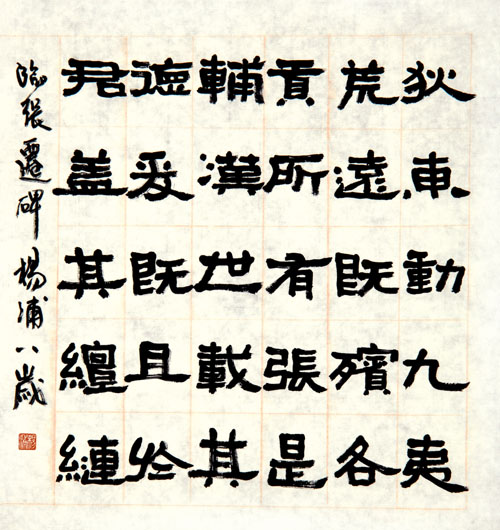 狄東動九夷
荒遠既殯各
貢所有張是
輔漢世載其
德爰既且於
君盖其繵縺
臨張遷碑 楊浦八歲